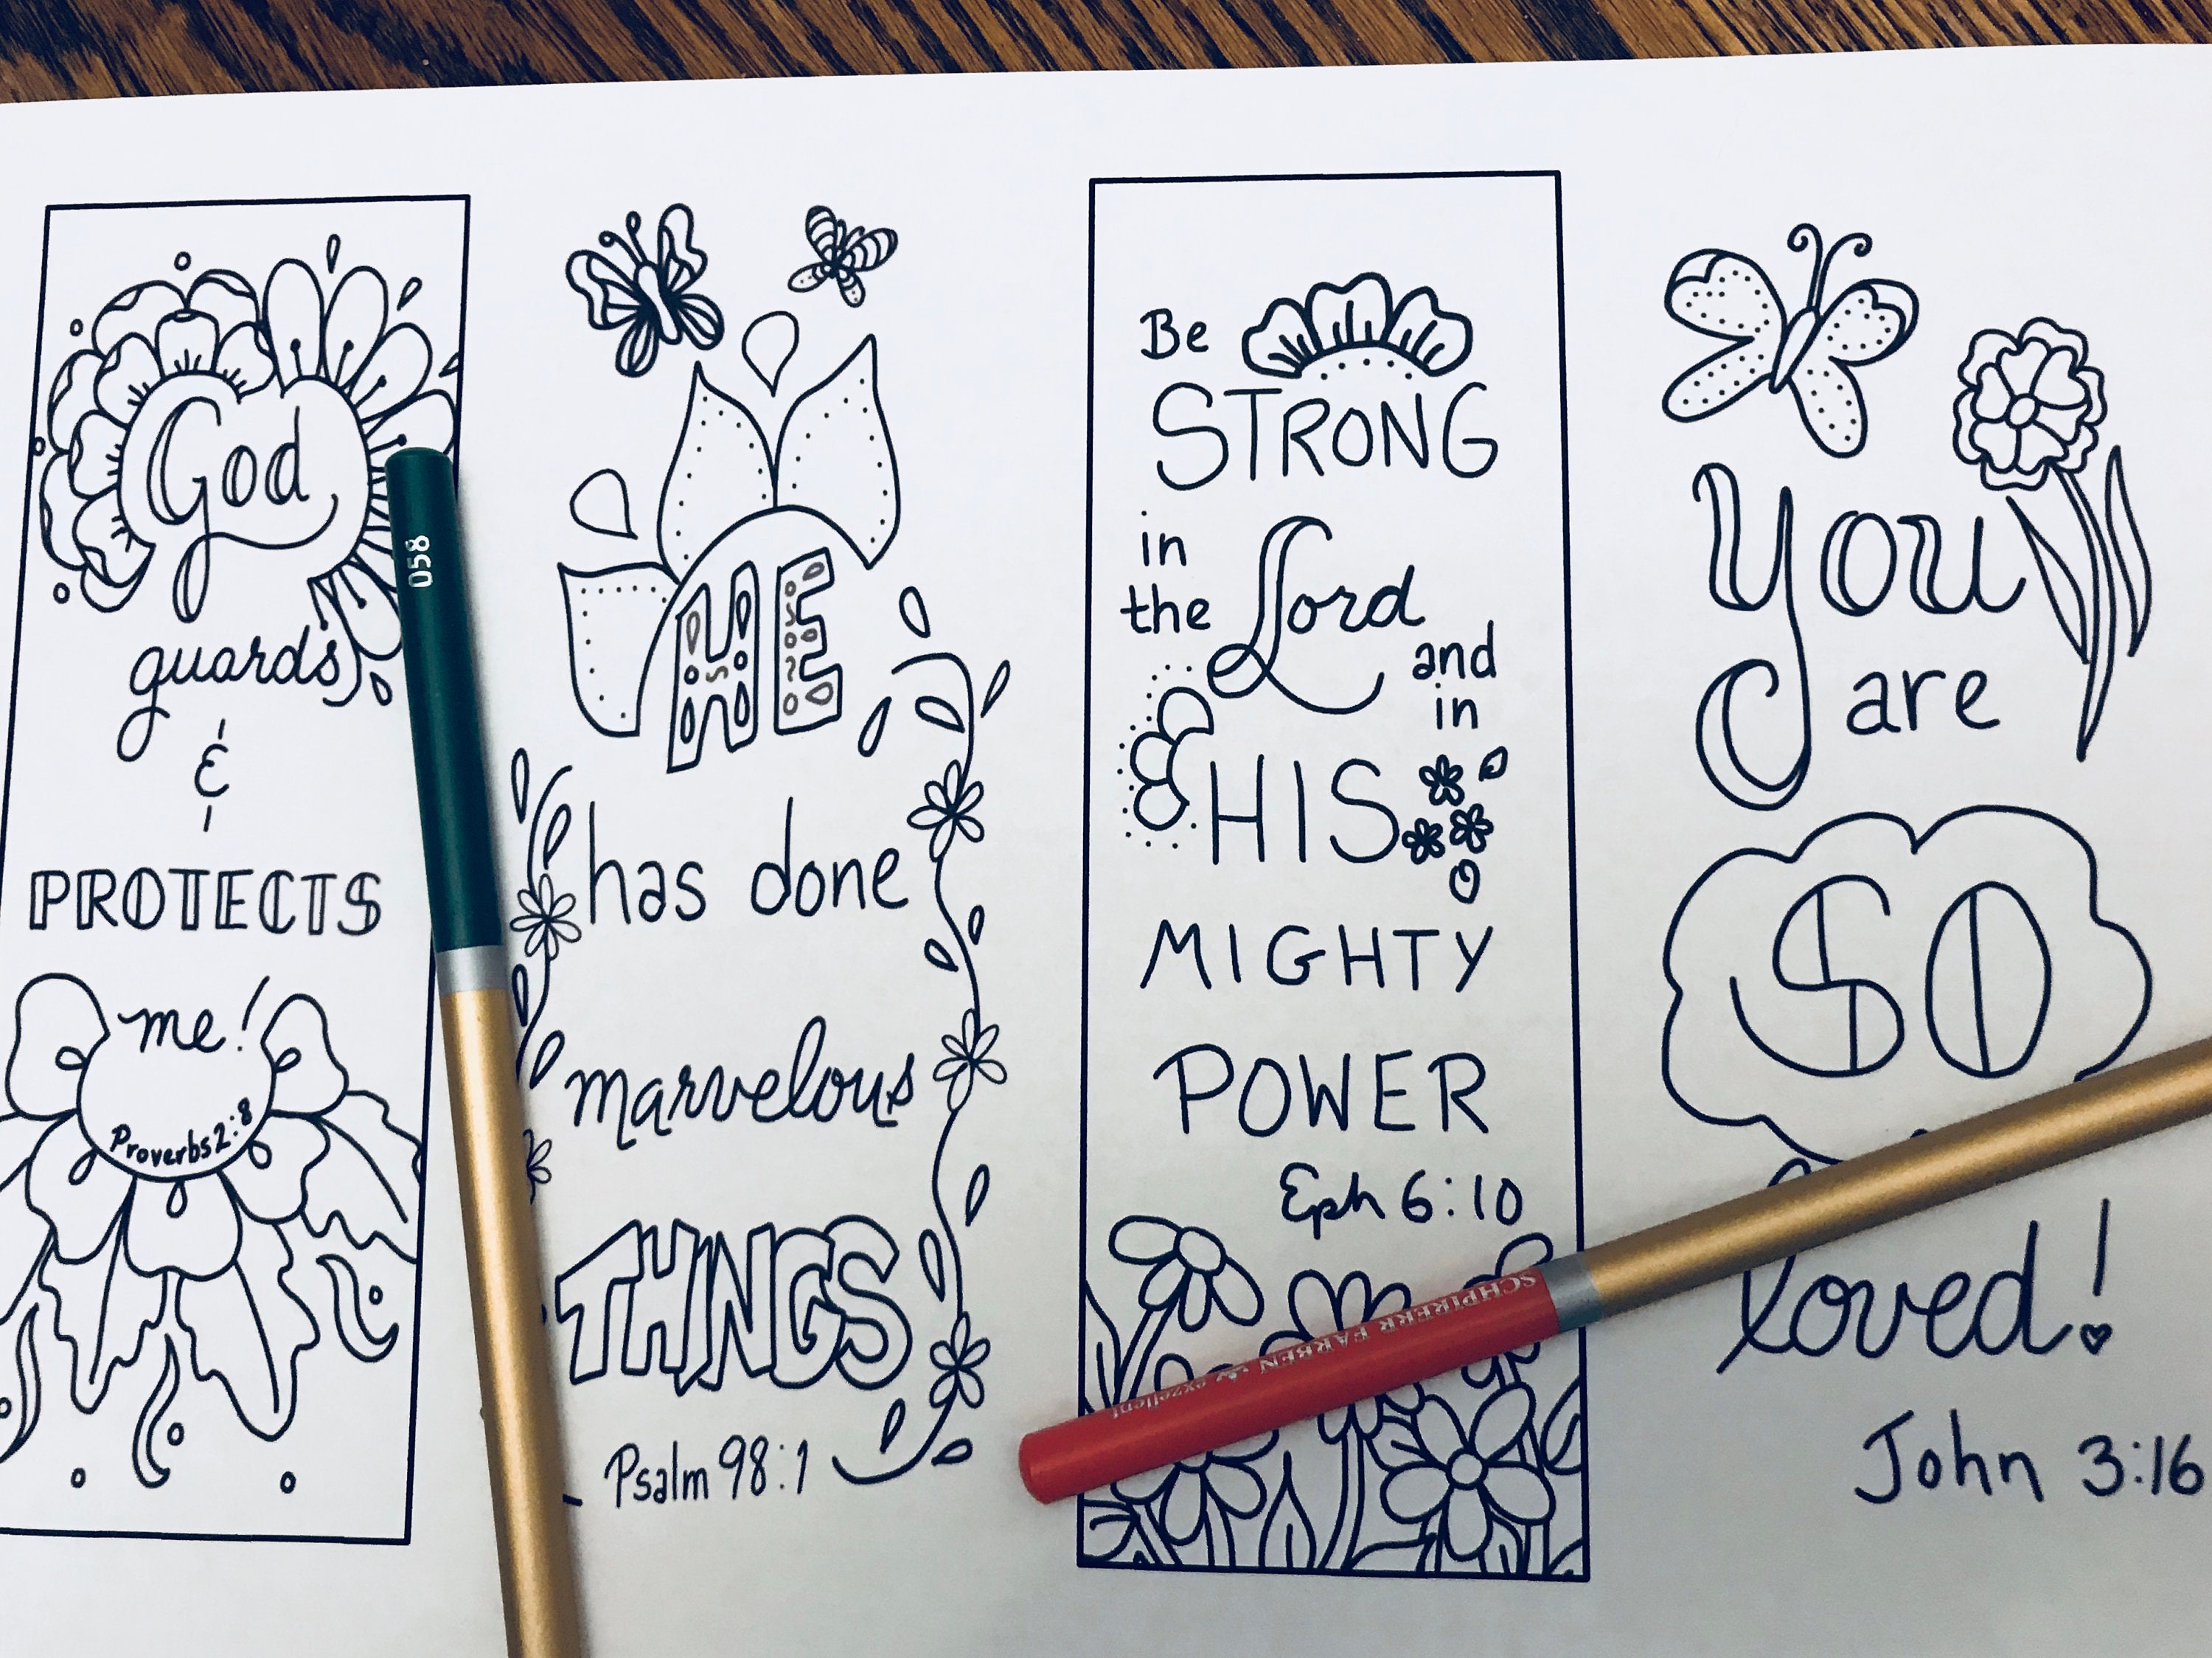 God
guards
&
PROTECTS
me!
Proverbs 2:8
058
HE
has done
marvelous
THINGS
Psalm 98:1
Be
STRONG
in
the Lord
and
in
HIS
MIGHTY
POWER
Eph 6:10
SCHPIRERR FARBEN exzellent
You
are
SO
loved!
John 3:16